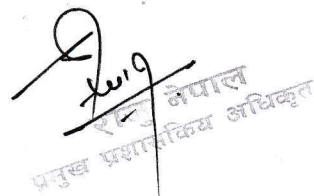 राजु नेपाल
प्रमुख प्रशासकिय अधिकृत